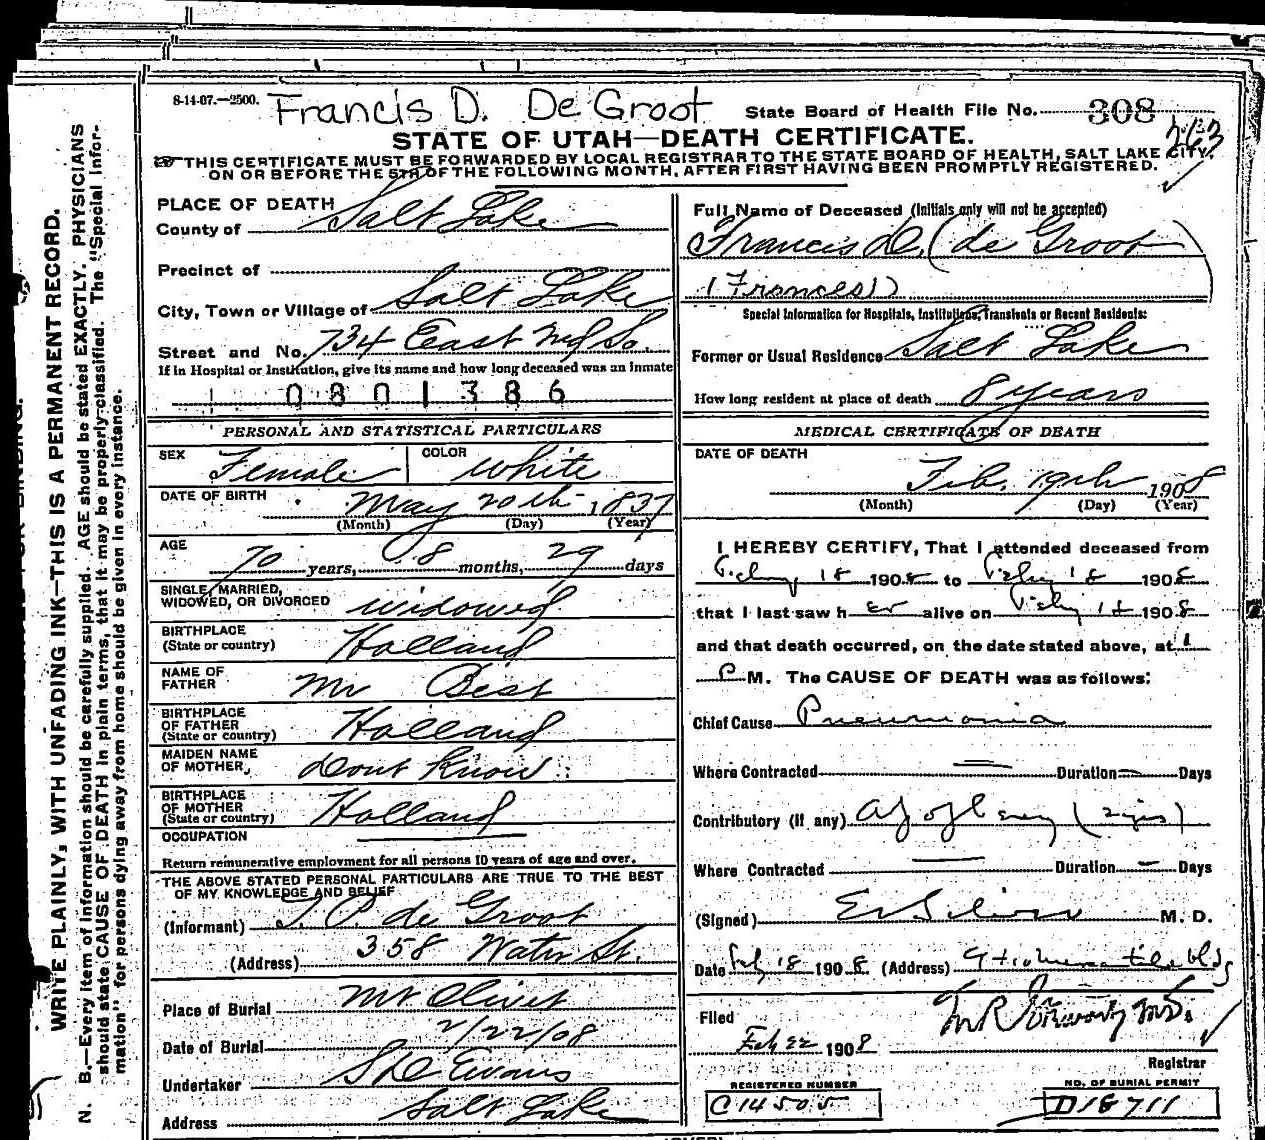 8-14-07.—2500. Francis D. De Groot State Board of Health File No. 308
STATE OF UTAH—DEATH CERTIFICATE.
THIS CERTIFICATE MUST BE FORWARDED BY LOCAL REGISTRAR TO THE STATE BOARD OF HEALTH, SALT LAKE CITY,
ON OR BEFORE THE 5TH OF THE FOLLOWING MONTH, AFTER FIRST HAVING BEEN PROMPTLY REGISTERED.
WRITE PLAINLY, WITH UNFADING INK—THIS IS A PERMANENT RECORD.
N. B.—Every item of information should be carefully supplied. AGE should be stated EXACTLY. PHYSICIANS
should state CAUSE OF DEATH in plain terms, that it may be properly classified. The "Special Infor-
mation" for persons dying away from home should be given in every instance.
PLACE OF DEATH
County of Salt Lake
Precinct of
City, Town or Village of Salt Lake
Street and No. 734 East So.
If in Hospital or Institution, give its name and how long deceased was an inmate
0801386
PERSONAL AND STATISTICAL PARTICULARS
SEX Female COLOR White
DATE OF BIRTH May 20th 1837
(Month) (Day) (Year)
AGE 70 years, 8 months, 29 days
SINGLE, MARRIED,
WIDOWED, OR DIVORCED Widowed
BIRTHPLACE
(State or country) Holland
NAME OF
FATHER Mr Best
BIRTHPLACE
OF FATHER
(State or country) Holland
MAIDEN NAME
OF MOTHER Dont Know
BIRTHPLACE
OF MOTHER
(State or country) Holland
OCCUPATION
Return remunerative employment for all persons 10 years of age and over.
THE ABOVE STATED PERSONAL PARTICULARS ARE TRUE TO THE BEST
OF MY KNOWLEDGE AND BELIEF
(Informant) de Groot
(Address) 358 Water St.
Place of Burial Mt Olivet
Date of Burial 2/22/08
Undertaker Evans
Address Salt Lake
Full Name of Deceased (Initials only will not be accepted)
Francis D. (de Groot)
(Frances)
Special Information for Hospitals, Institutions, Transients or Recent Residents:
Former or Usual Residence Salt Lake
How long resident at place of death 8 years
MEDICAL CERTIFICATE OF DEATH
DATE OF DEATH
Feb. 19th 1908
(Month) (Day) (Year)
I HEREBY CERTIFY, That I attended deceased from
18 1908 to 18 1908
that I last saw her alive on 18 1908
and that death occurred, on the date stated above, at 1
P M. The CAUSE OF DEATH was as follows:
Chief Cause Pneumonia
Where Contracted Duration Days
Contributory (if any)
Where Contracted Duration Days
(Signed) M. D.
Date 18 1908 (Address)
Filed
Feb 22 1908
Registrar
REGISTERED NUMBER
C14505
NO. OF BURIAL PERMIT
D18711